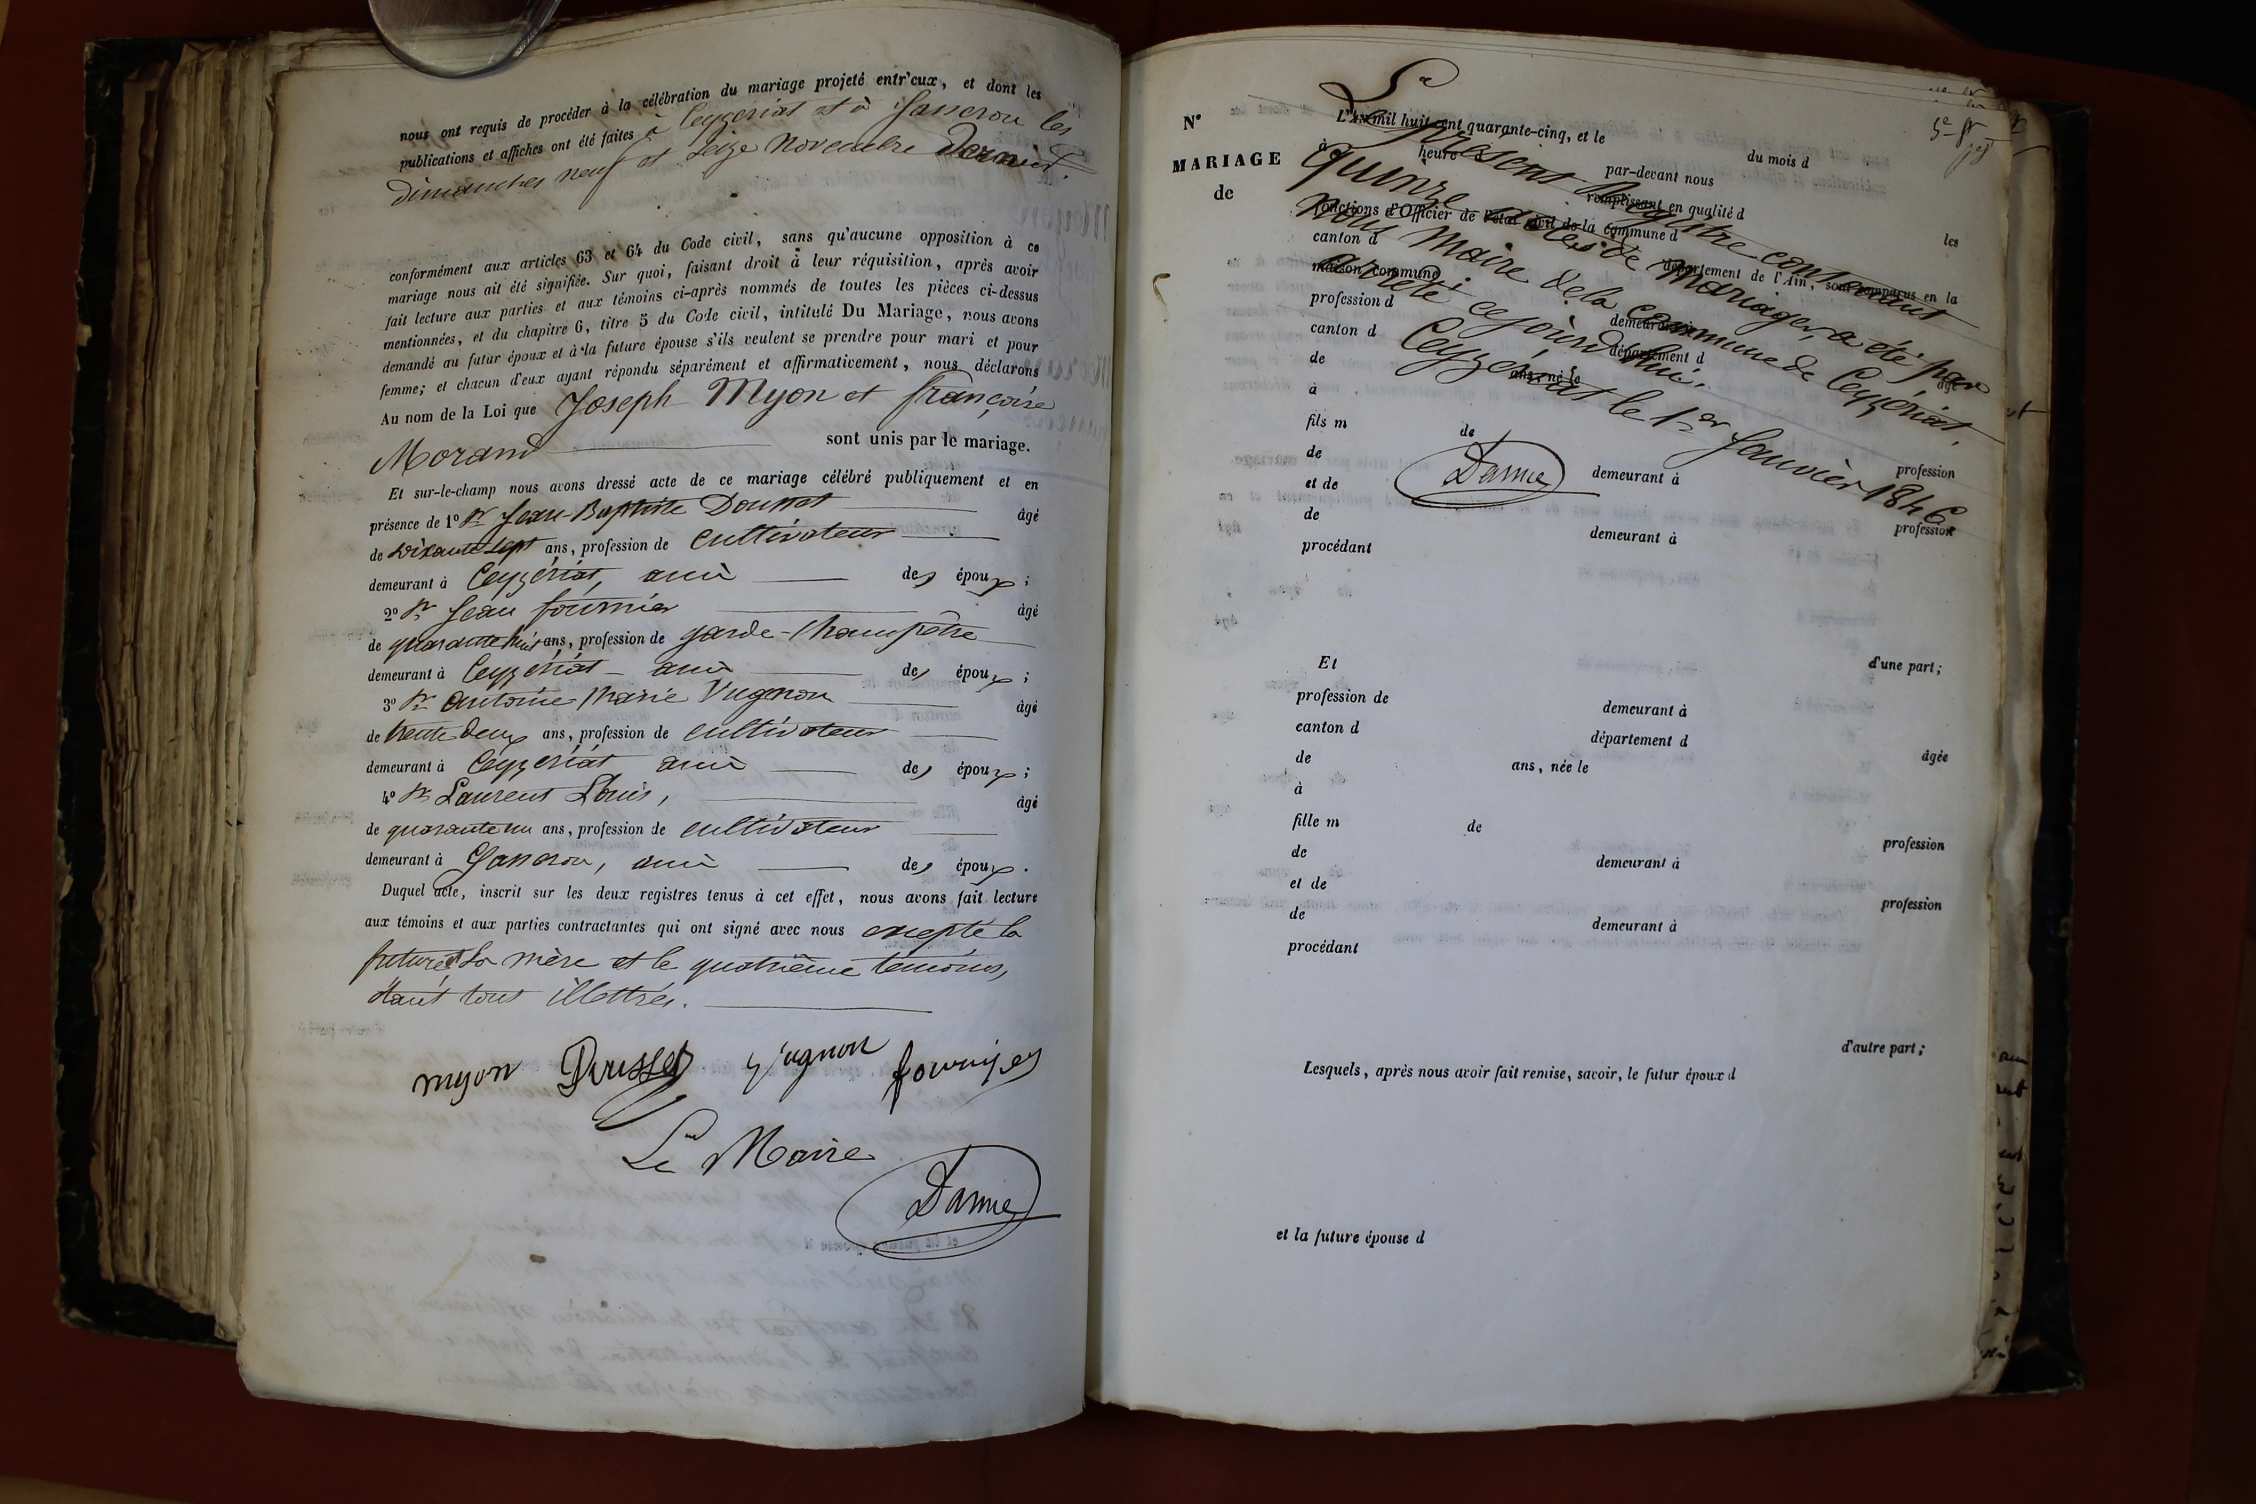 nous ont requis de procéder à la célébration du mariage projeté entr'eux, et dont les
publications et affiches ont été faites à Ceyzériat et à Jasseron les
dimanches neuf et seize novembre dernier.
conformément aux articles 63 et 64 du Code civil, sans qu'aucune opposition à ce
mariage nous ait été signifiée. Sur quoi, faisant droit à leur réquisition, après avoir
fait lecture aux parties et aux témoins ci-après nommés de toutes les pièces ci-dessus
mentionnées, et du chapitre 6, titre 5 du Code civil, intitulé Du Mariage, nous avons
demandé au futur époux et à la future épouse s'ils veulent se prendre pour mari et pour
femme; et chacun d'eux ayant répondu séparément et affirmativement, nous déclarons
Au nom de la Loi que Joseph Myon et françoise
Morand sont unis par le mariage.
Et sur-le-champ nous avons dressé acte de ce mariage célébré publiquement et en
présence de 1° Sr Jean-Baptiste Dousset âgé
de soixante sept ans, profession de cultivateur
demeurant à Ceyzériat, ami des époux;
2° Sr Jean fournier âgé
de quarante huit ans, profession de garde-champêtre
demeurant à Ceyzériat ami des époux;
3° Sr antoine Marie Vugnon âgé
de trente deux ans, profession de cultivateur
demeurant à Ceyzériat ami des époux;
4° Sr Laurent Louis, âgé
de quarante un ans, profession de cultivateur
demeurant à Jasseron, ami des époux.
Duquel acte, inscrit sur les deux registres tenus à cet effet, nous avons fait lecture
aux témoins et aux parties contractantes qui ont signé avec nous excepté la
future, sa mère et le quatrième témoins,
étant tous illettrés.
myon Dousset Vugnon fournier
Le Maire
Damne
N°
MARIAGE
de
L'An mil huit cent quarante-cinq, et le du mois d
à heure par-devant nous
remplissant en qualité d les
fonctions d'Officier de l'état civil de la commune d
canton d département de l'Ain, sont comparus en la
maison commune
profession d demeurant à
canton d département d âgé
de ans, né le
à
fils m de
de demeurant à profession
et de
de demeurant à profession
procédant
Le
présent Registre contenant
quinze actes de mariages, a été par
nous Maire de la commune de Ceyzériat,
arrêté cejourd'hui.
Ceyzériat le 1er Janvier 1846
Damne
d'une part;
Et
profession de demeurant à
canton d département d
de ans, née le âgée
à
fille m de
de demeurant à profession
et de
de demeurant à profession
procédant
d'autre part;
Lesquels, après nous avoir fait remise, savoir, le futur époux d
et la future épouse d